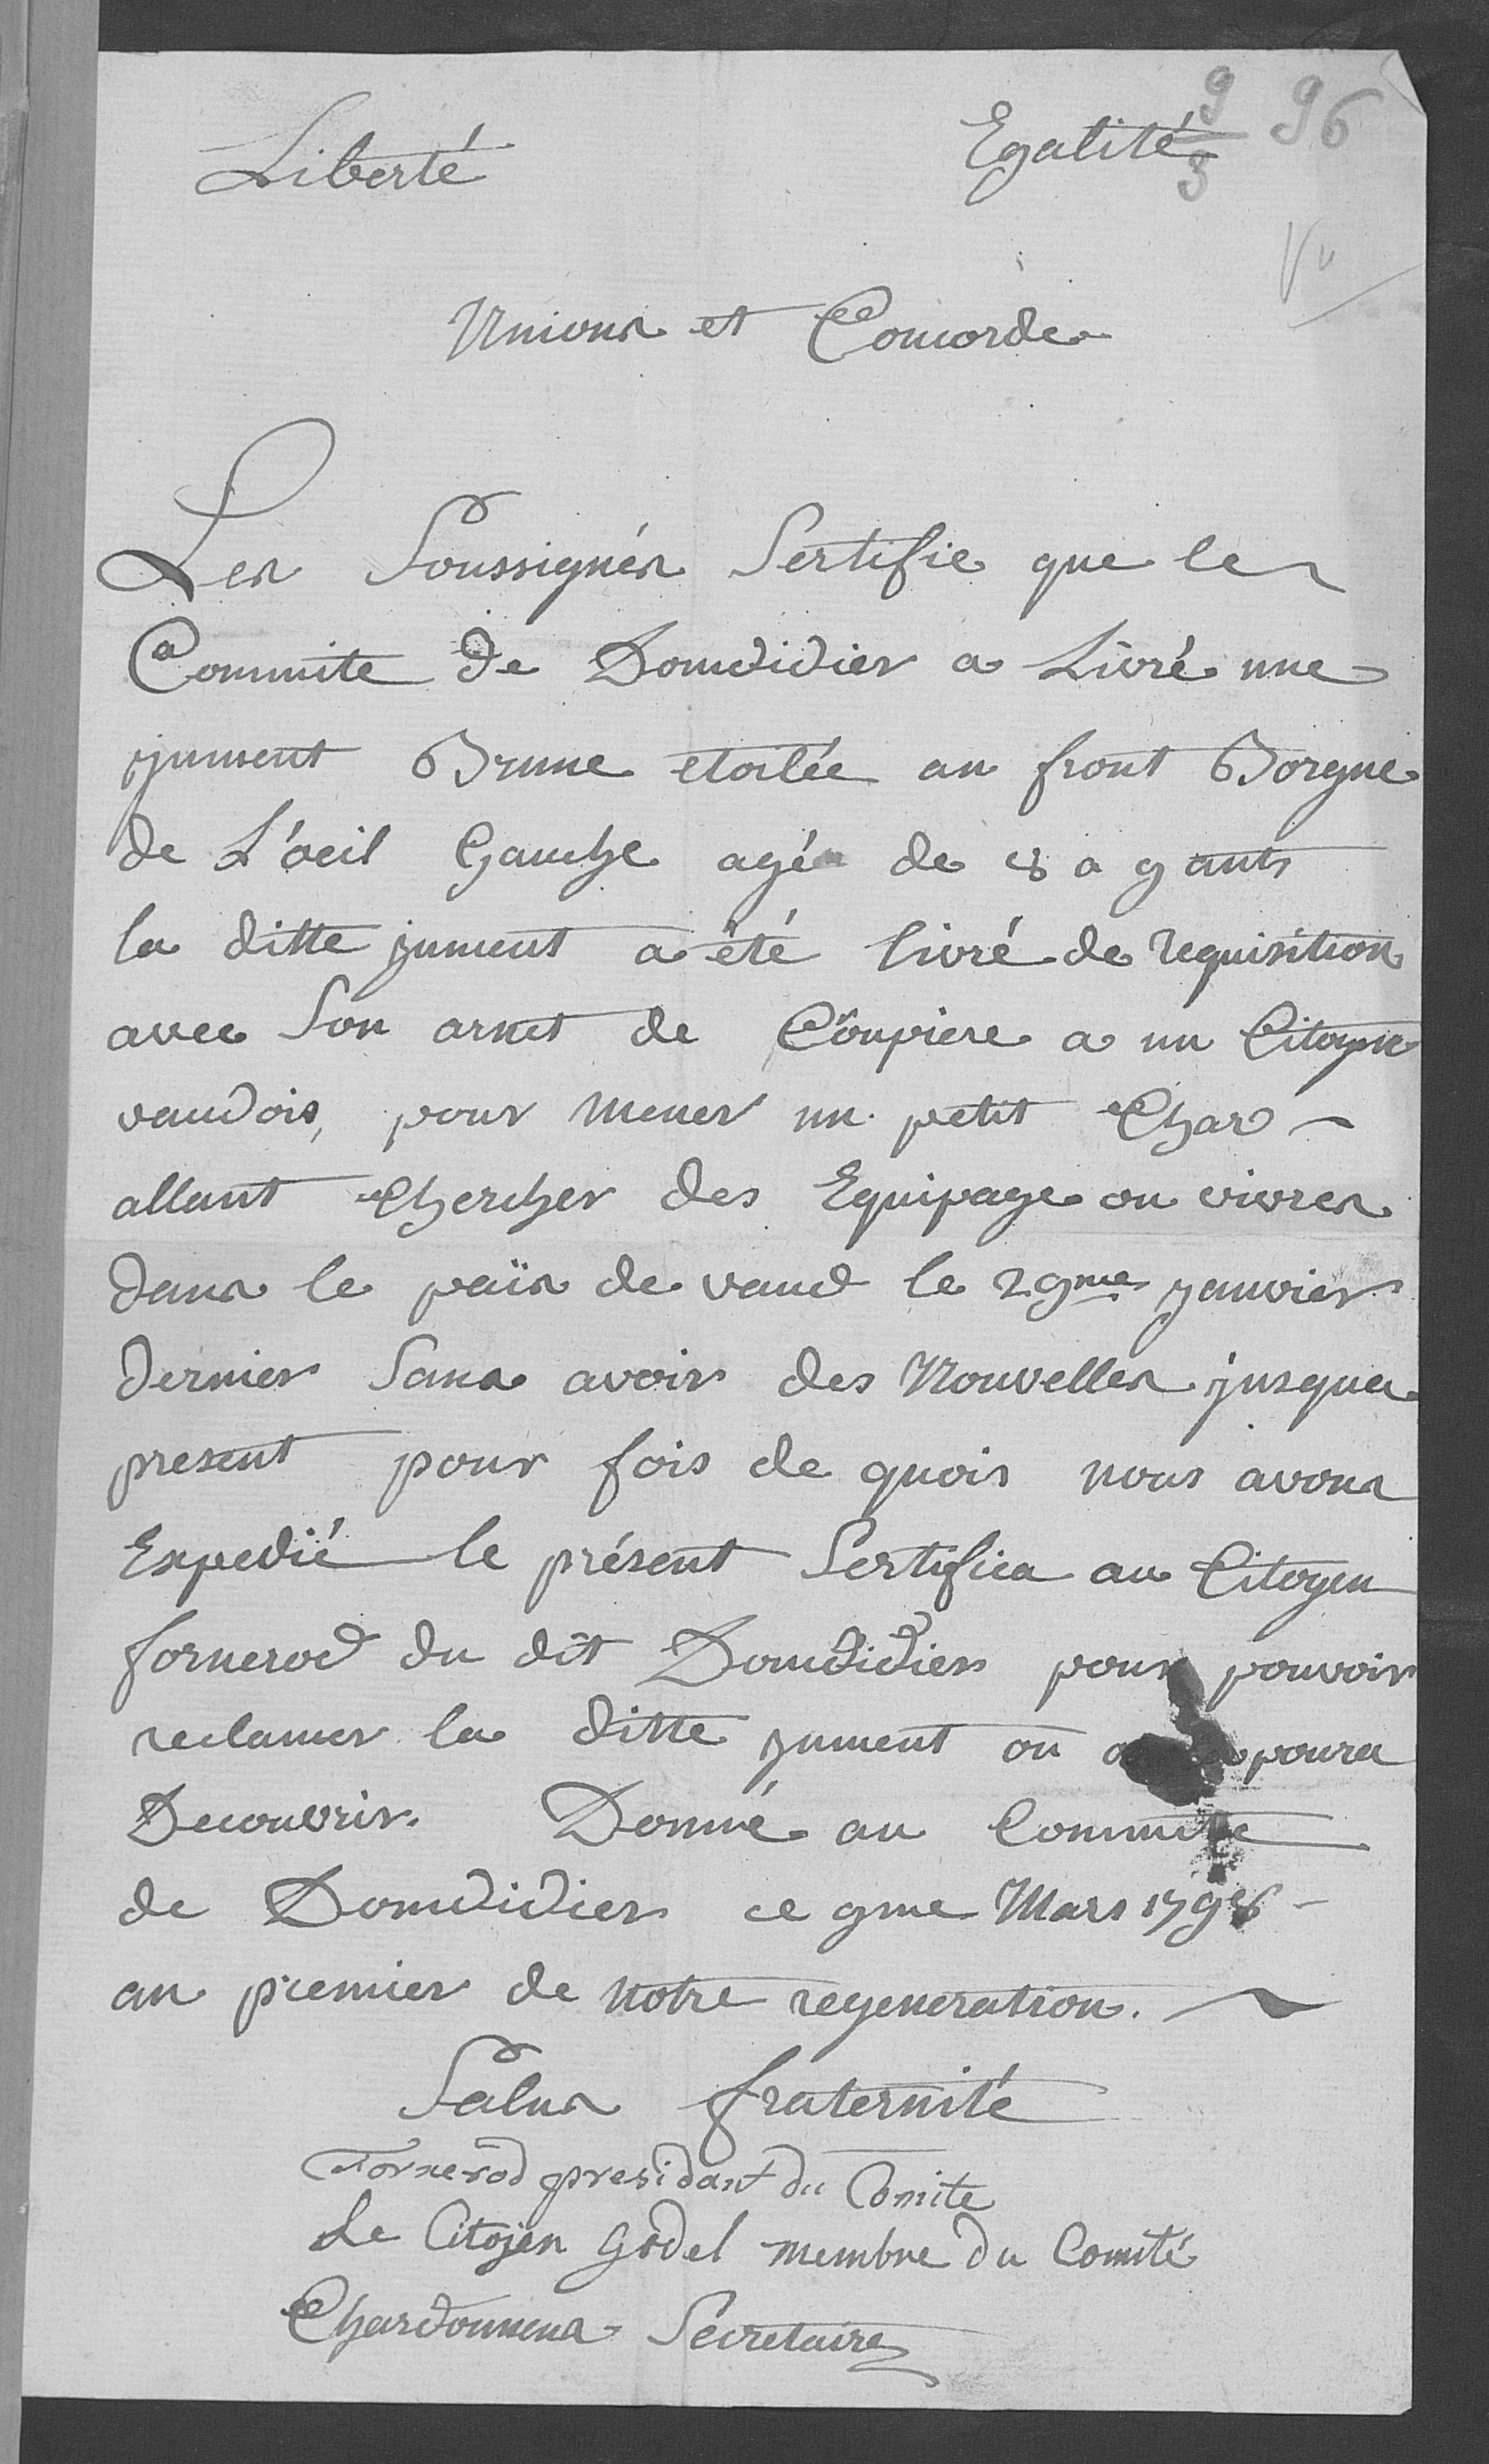 Liberté Egalité 9/3 96
Vu
Unions et Concorde
Les Soussignés Sertifie que le
Commite de Domdidier a Livré une
jument Brune etoilée au front Borgne
de L'oeil Gauche agée de 8 a 9 ants
la ditte jument a été livré de requisition
avec Son arnet de Coupiere a un Citoyen
vaudois, pour mener un petit Char
allant Chercher des Equipage ou vivres
dans le païs de vaud le 29me janvier
dernier Sans avoir des Nouvelles jusqua
present pour fois de quois nous avons
Expedié le présent Sertifica au Citoyen
fornerod du dit Domdidier pour pouvoir
reclamer la ditte jument ou poura
Decouvrir. Donné au Commite
de Domdidier ce 9me Mars 1798
an premier de notre regeneration.
Salus fraternité
Fornerod presidant du Comite
Le Citojen Godel membre du Comité
Chardonnens Secretaire